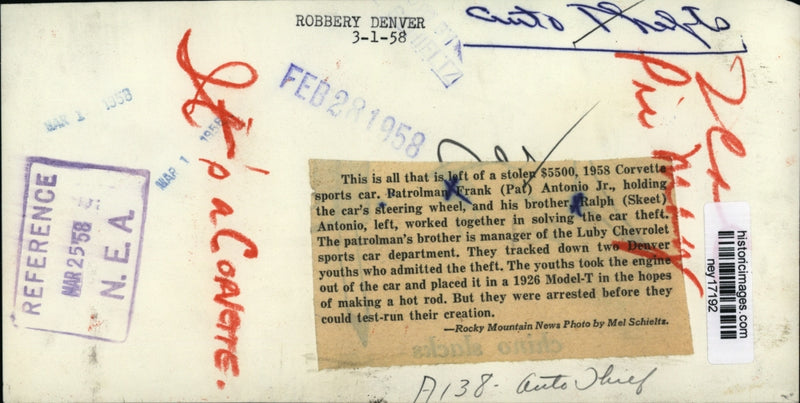 ROBBERY DENVER
3-1-58
auto Thefts
FEB 28 1958
MAR 1 1958
MAR 1 1958
It's a Corvette.
REFERENCE
MAR 25 '58
N. E. A.
This is all that is left of a stolen $5500, 1958 Corvette
sports car. Patrolman Frank (Pat) Antonio Jr., holding
the car's steering wheel, and his brother Ralph (Skeet)
Antonio, left, worked together in solving the car theft.
The patrolman's brother is manager of the Luby Chevrolet
sports car department. They tracked down two Denver
youths who admitted the theft. The youths took the engine
out of the car and placed it in a 1926 Model-T in the hopes
of making a hot rod. But they were arrested before they
could test-run their creation.
—Rocky Mountain News Photo by Mel Schieltz.
chino slacks
A138- auto thief
historicimages.com
ney17192